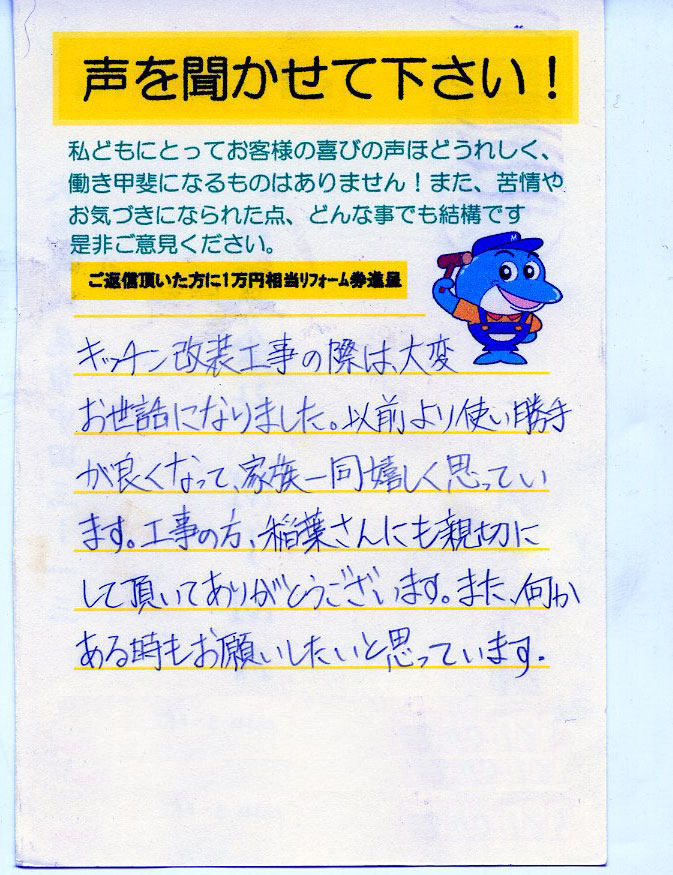 声を聞かせて下さい！
私どもにとってお客様の喜びの声ほどうれしく、
働き甲斐になるものはありません！また、苦情や
お気づきになられた点、どんな事でも結構です
是非ご意見ください。
ご返信頂いた方に1万円相当リフォーム券進呈
M
キッチン改装工事の際は、大変
お世話になりました。以前より使い勝手
が良くなって、家族一同嬉しく思ってい
ます。工事の方、稲葉さんにも親切に
して頂いてありがとうございます。また、何か
ある時もお願いしたいと思っています.